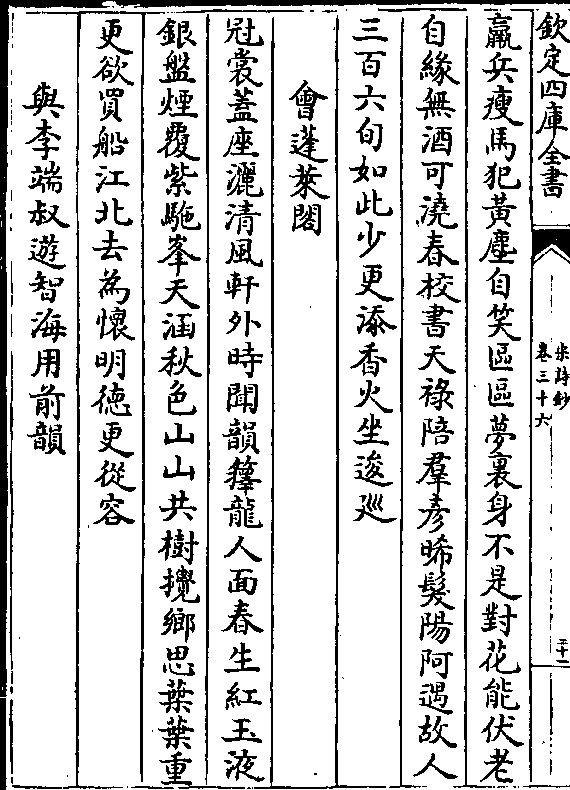 欽定四庫全書
宋詩鈔
卷三十六
二十二
羸兵瘦馬犯黃塵自笑區區夢裏身不是對花能伏老
自緣無酒可澆春校書天祿陪羣彥晞髮陽阿遇故人
三百六旬如此少更添香火坐逡廵
會蓬萊閣
冠裳蓋座灑清風軒外時聞韻籜龍人面春生紅玉液
銀盤煙覆紫駞峯天涵秋色山山共樹攪鄉思葉葉重
更欲買船江北去為懷明德更從容
與李端叔遊智海用前韻